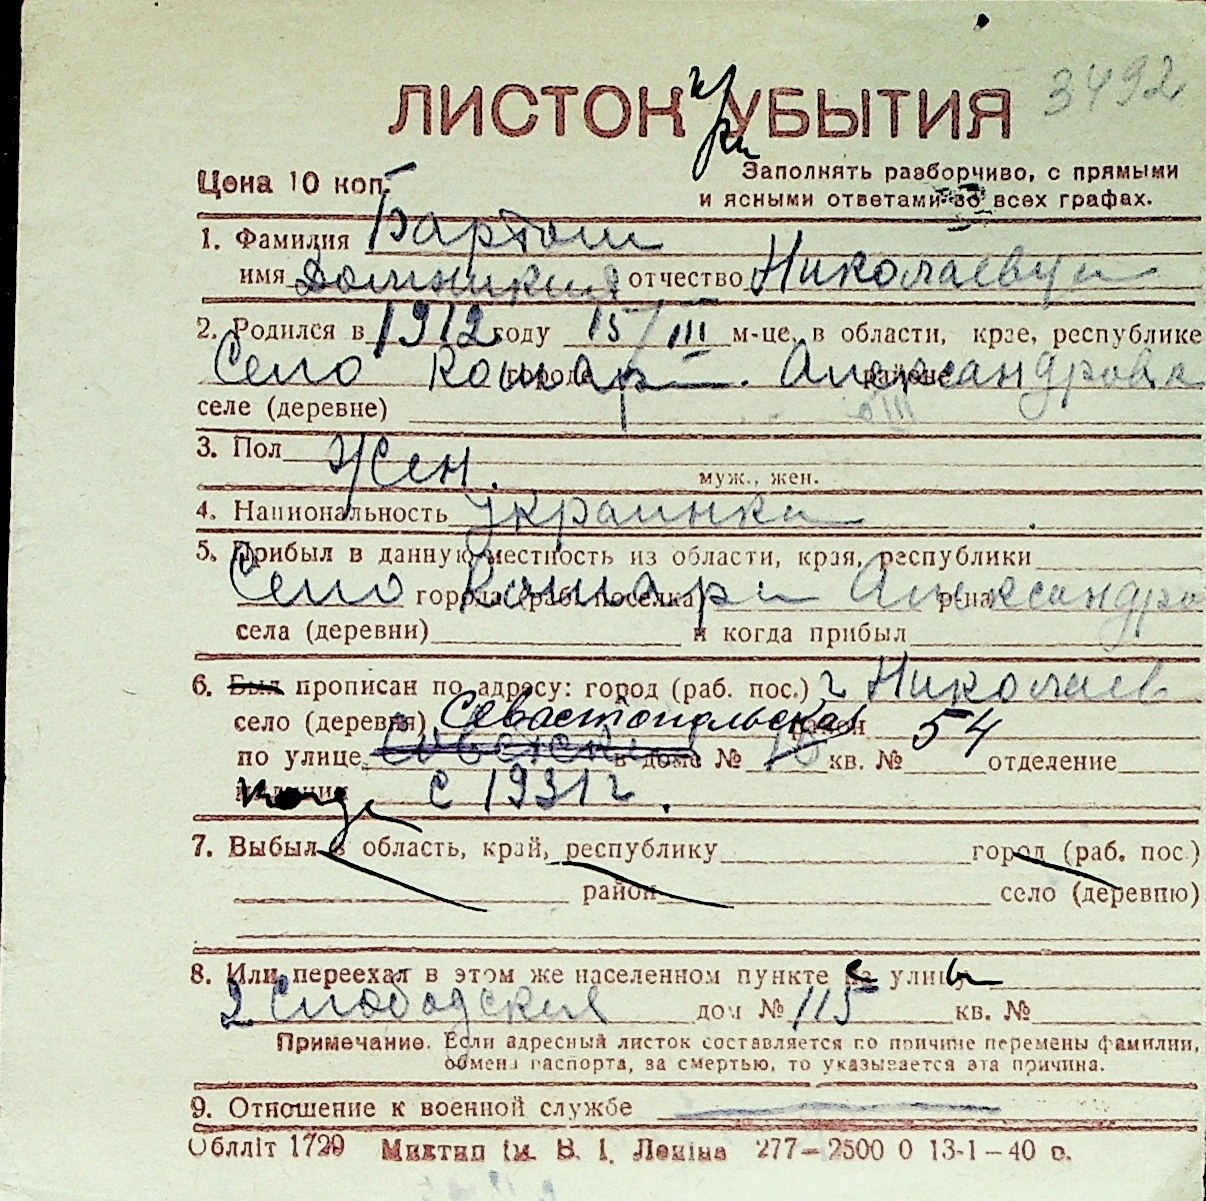 3492
ЛИСТОК УБЫТИЯ
Цена 10 коп. Заполнять разборчиво, с прямыми
и ясными ответами во всех графах.
1. Фамилия Бартош
имя Домникия отчество Николаевич
2. Родился в 1912 году 15/III м-це, в области, крае, республике
Село Кошари городе Александровка районе
селе (деревне)
3. Пол Жен. муж., жен.
4. Национальность Украинка
5. Прибыл в данную местность из области, края, республики
Село города Кошари (раб. поселка) Александро р-на
села (деревни) и когда прибыл
6. Был прописан по адресу: город (раб. пос.) г Николаев
село (деревня) Севастопольская район 54
по улице Советской в доме № кв. № отделение
милиции с 1931 г.
7. Выбыл в область, край, республику город (раб. пос.)
район село (деревню)
8. Или переехал в этом же населенном пункте на улицу
2 Слободская дом № 115 кв. №
Примечание. Если адресный листок составляется по причине перемены фамилии,
обмена паспорта, за смертью, то указывается эта причина.
9. Отношение к военной службе
Обллiт 1729 Миктип iм. В. I. Ленiна 277—2500 0 13-1—40 р.